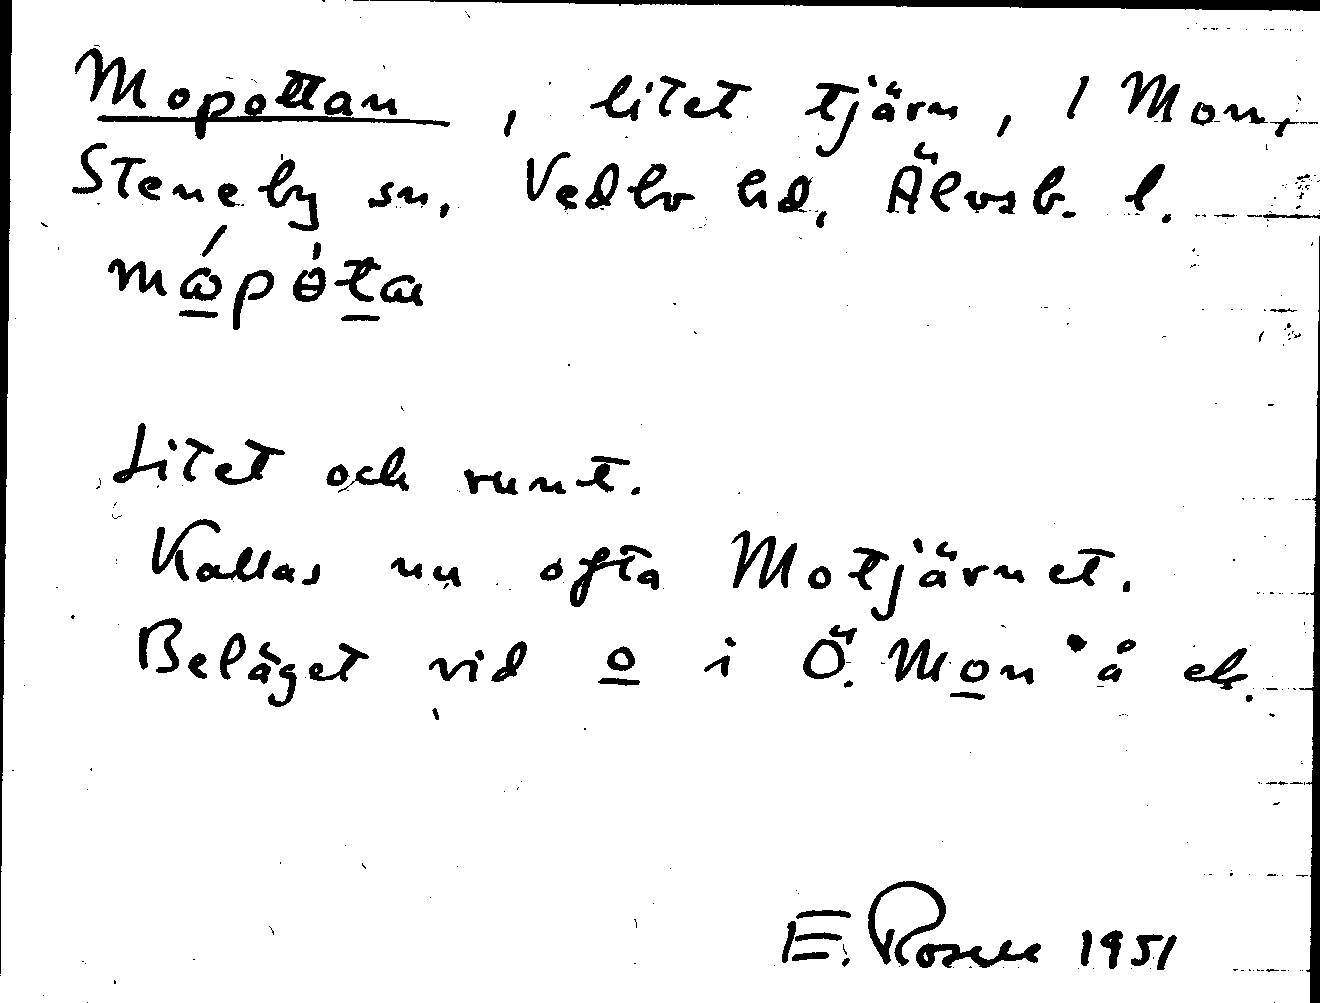 Mopottan, litet tjärn, 1 Mon,
Steneby sn, Vedbo hd, Älvsb. l.
Litet och runt.
Kallas nu ofta Motjärnet.
Beläget vid o i Ö. Mon å ek.
E. Rosell 1951